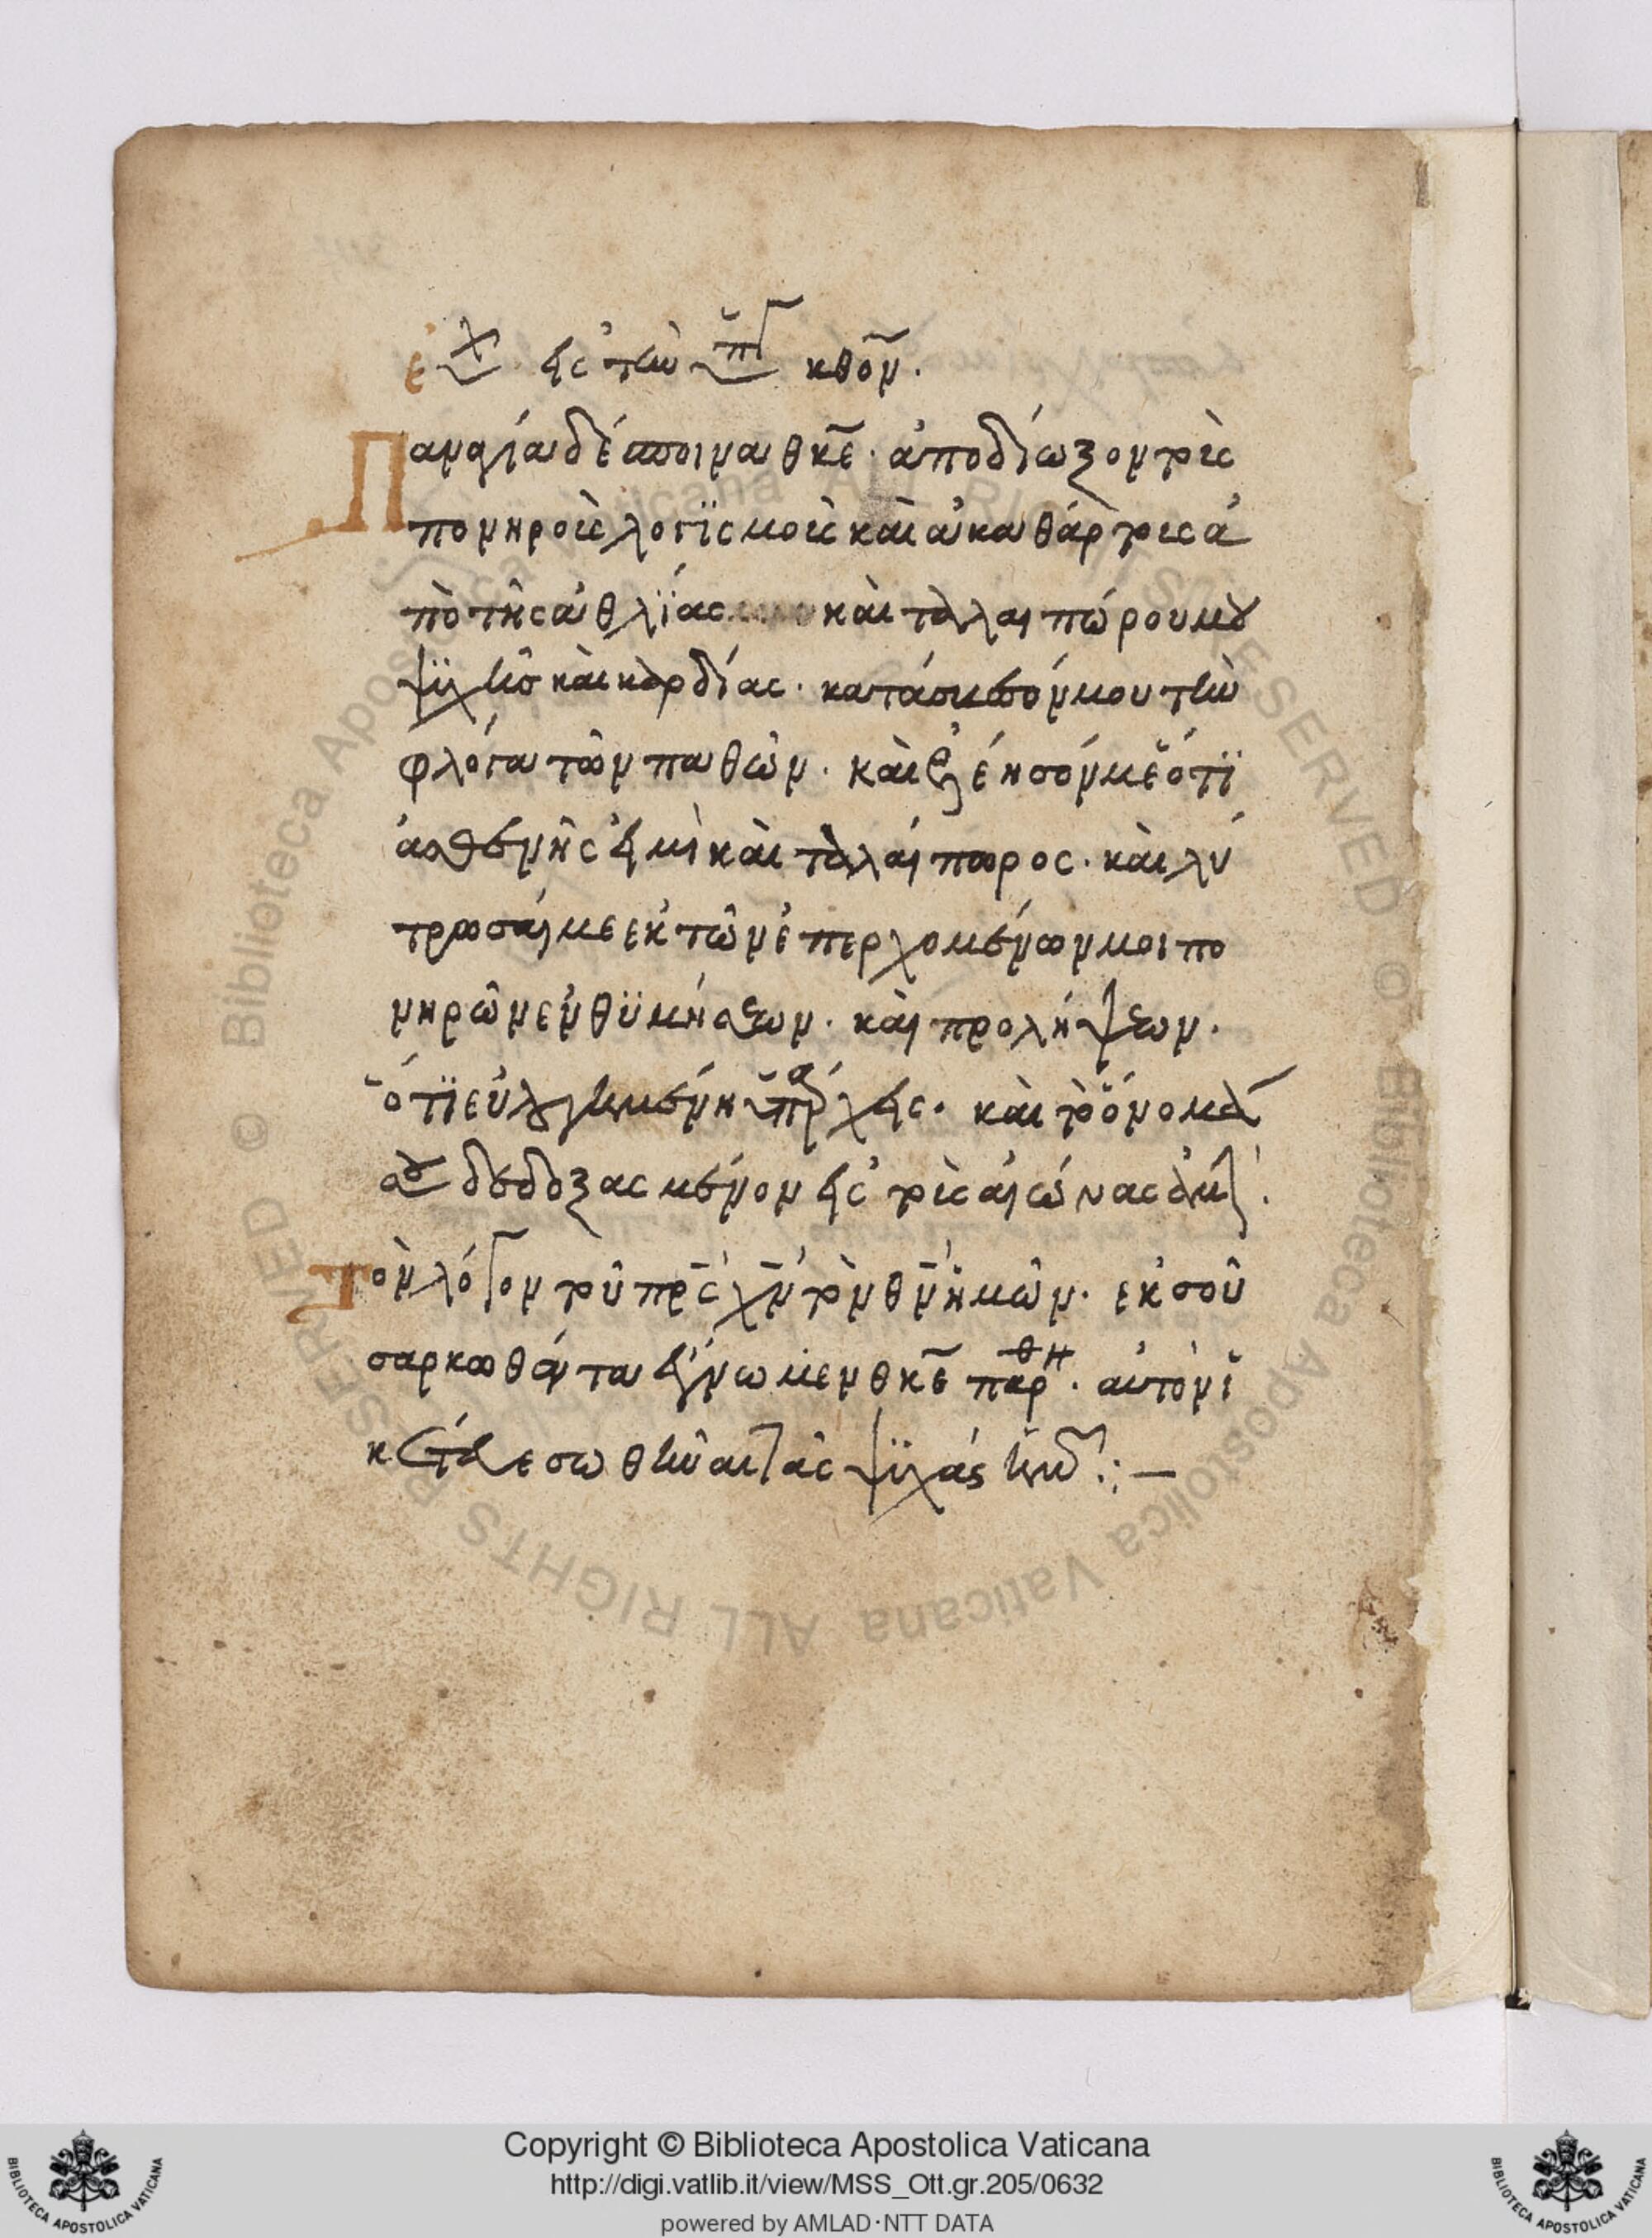 εὐχ εἰς τὴν ὑπ θκον.
Παναγία δέσποινα θκε. ἀποδίωξον τοὺς
πονηροὺς λογϊσμοὺς καὶ ἀκαθάρτους ἀ
πὸ τῆς ἀθλΐας καὶ ταλαιπώρου μου
ψϋχῆσ καὶ καρδίας. κατάσβεσόν μου τὴν
φλόγα τῶν παθῶν. καὶ ἐλέησόν με ὅτϊ
ἀσθενής εἰμὶ καὶ ταλαίπωρος. καὶ λύ
τρωσαί με ἐκ τῶν ἐπερχομένων μοι πο
νηρῶν ἐνθϋμήσεων. καὶ προλήψεων.
ὅτϊ εὐλογημένη ὑπάρχεις. καὶ τὸ ὄνομά
σου δεδοξασμένον εἰς τοὺς αἰώνας ἀμ.
Τὸν λόγον τοῦ πρς χν τὸν θν ἡμῶν. ἐκ σοῦ
σαρκωθέντα ἔγνωμεν θκε παρθ. αὐτὸν ϊ
κέτευε σωθῆναι τὰς ψϋχάς ἡμ :—
Copyright © Biblioteca Apostolica Vaticana
http://digi.vatlib.it/view/MSS_Ott.gr.205/0632
powered by AMLAD·NTT DATA
BIBLIOTECA APOSTOLICA VATICANA
BIBLIOTECA APOSTOLICA VATICANA
© Biblioteca Apostolica Vaticana ALL RIGHTS RESERVED © Biblioteca Apostolica Vaticana ALL RIGHTS RESERVED